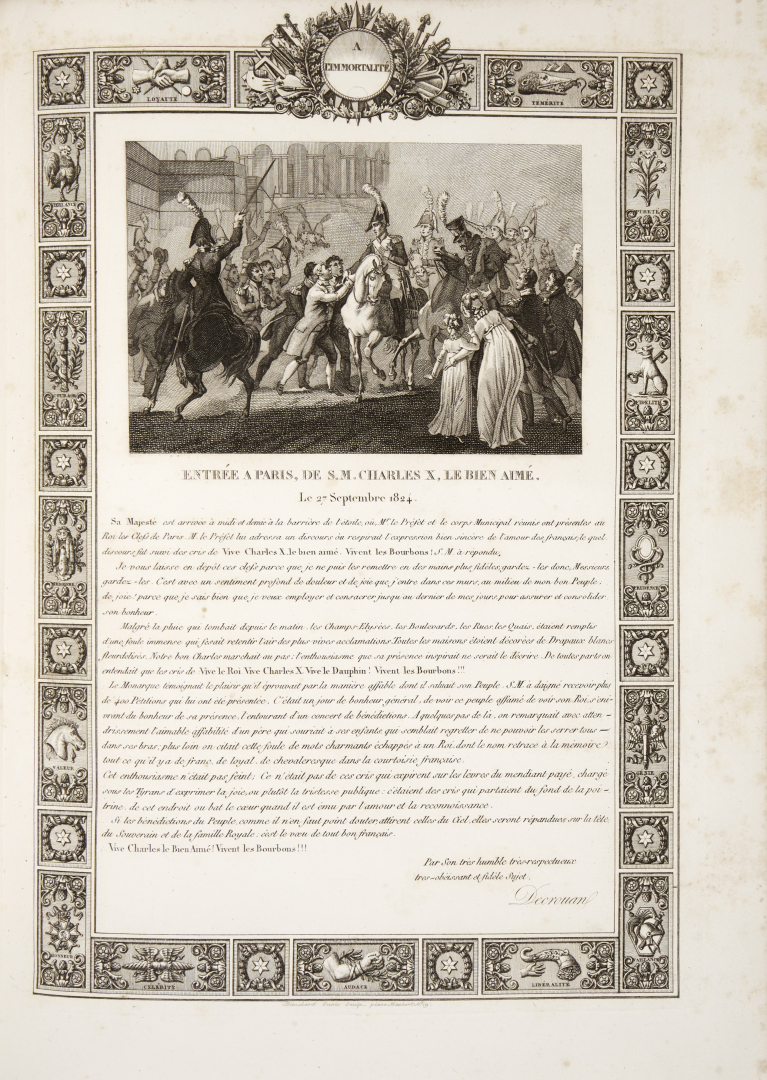 A
L'IMMORTALITÉ
LOYAUTÉ
TÉMÉRITÉ
VIGILANCE
PURETÉ
FIDELITÉ
PRUDENCE
VALEUR
HONNEUR
CÉLÉRITÉ
AUDACE
LIBÉRALITÉ
ENTRÉE A PARIS, DE S.M. CHARLES X, LE BIEN AIMÉ.
Le 27 Septembre 1824.
Sa Majesté est arrivée à midi et demie à la barrière de l'étoile, ou, Mr. le Préfét et le corps Municipal réunis ont présentés au
Roi les Clefs de Paris. M. le Préfét lui adressa un discours ou respirait l'expression bien sincère de l'amour des français, le quel
discours fut suivi des cris de Vive Charles X, le bien aimé. Vivent les Bourbons! S.M. à répondu,
Je vous laisse en depôt ces clefs parce que je ne puis les remettre en des mains plus fidèles, gardez-les donc, Messieurs,
gardez-les. C'est avec un sentiment profond de douleur et de joie que j'entre dans ces murs, au milieu de mon bon Peuple;
de joie! parce que je sais bien que je veux employer et consacrer jusqu'au dernier de mes jours, pour assurer et consolider
son bonheur.
Malgré la pluie qui tombait depuis le matin, les Champs-Elysées, les Boulevards, les Rues, les Quais, étaient remplis
d'une foule immense qui fesait retentir l'air des plus vives acclamations. Toutes les maisons étoient décorées de Drapaux blancs
fleurdelisés. Notre bon Charles marchait au pas; l'enthousiasme que sa présence inspirait ne serait le décrire. De toutes parts on
entendait que les cris de Vive le Roi Vive Charles X. Vive le Dauphin! Vivent les Bourbons!!!
Le Monarque témoignait le plaisir qu'il éprouvait par la manière affable dont il saluait son Peuple. S.M. à daigné recevoir plus
de 400 Petitions qui lui ont éte présentée. C'était un jour de bonheur général, de voir ce peuple affamé de voir son Roi, s'eni-
vrant du bonheur de sa présence, l'entourant d'un concert de bénédictions. A quelques pas de là, on remarquait avec atten-
drissement l'aimable affabilité d'un père qui souriait à ses enfants qui semblait regretter de ne pouvoir les serrer tous —
dans ses bras, plus loin on citait cette foule de mots charmants échappés à un Roi, dont le nom retrace à la mémoire
tout ce qu'il y a de franc, de loyal, de chevaleresque dans la courtoisie française.
Cet enthousiasme n'était pas feint; Ce n'était pas de ces cris qui expirent sur les levres du mendiant payé, chargé
sous les Tyrans d'exprimer la joie, ou plutôt la tristesse publique; c'étaient des cris qui partaient du fond de la poi-
trine, de cet endroit ou bat le cœur quand il est emu par l'amour et la reconnoissance.
Si les bénédictions du Peuple, comme il n'en faut point douter, attirent celles du Ciel, elles seront répandues sur la tête
du Souverain et de la famille Royale; c'est le vœu de tout bon français.
Vive Charles le Bien Aimé! Vivent les Bourbons!!!
Par Son très humble très-respectueux
très-obeissant et fidèle Sujet.
Decrouan